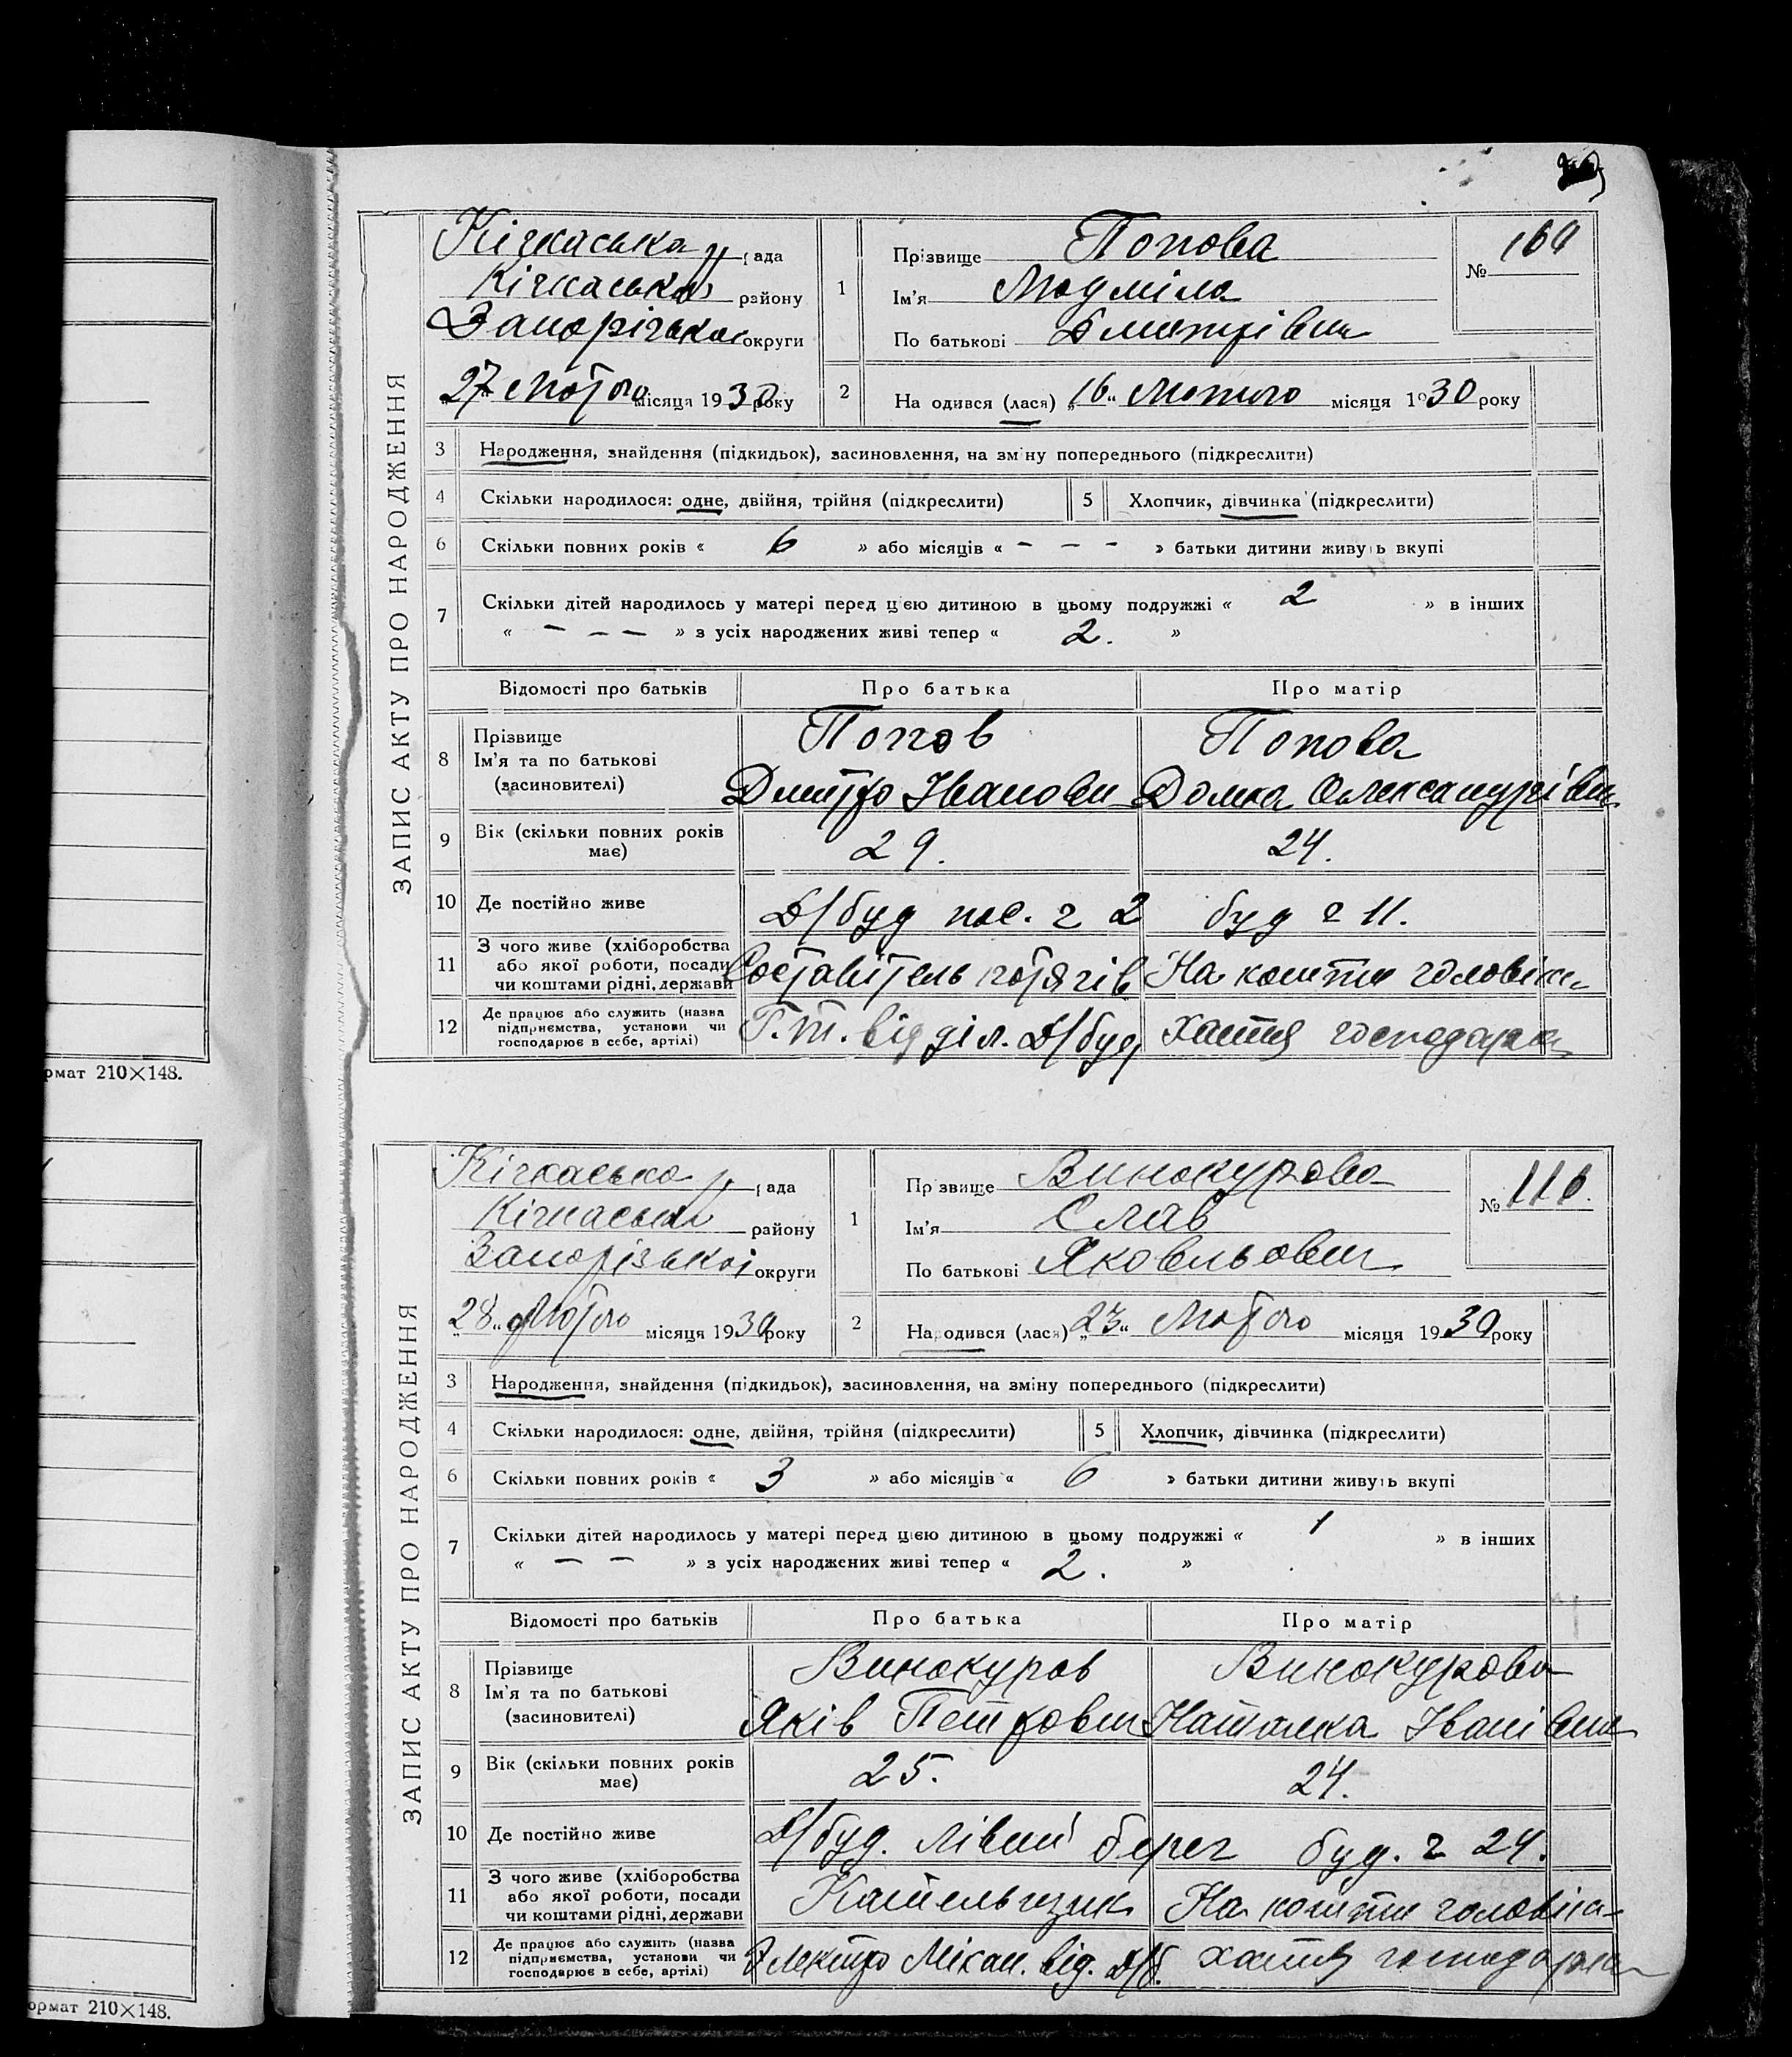 ЗАПИС АКТУ ПРО НАРОДЖЕННЯ
Кічкаська рада
Кічкаськ району
Запорізької округи
27 Лютого місяця 1930 року
1 Прізвище Попова
Ім'я Людміла
По батькові Дмитрівн
№ 164
2 На одився (лася) „16“ Лютого місяця 1930 року
3 Народження, знайдення (підкидьок), засиновлення, на зміну попереднього (підкреслити)
4 Скільки народилося: одне, двійня, трійня (підкреслити) 5 Хлопчик, дівчинка (підкреслити)
6 Скільки повних років « 6 » або місяців « – – – » батьки дитини живуть вкупі
7 Скільки дітей народилось у матері перед цією дитиною в цьому подружжі « 2 » в інших
« – – – » з усіх народжених живі тепер « 2. »
Відомості про батьків Про батька Про матір
8 Прізвище Ім'я та по батькові (засиновителі)
Попов Попова
Дмитро Іванови Домка Олександрівн
9 Вік (скільки повних років має) 29. 24.
10 Де постійно живе Д/буд пос. ч 2 буд ч 11.
11 З чого живе (хліборобства або якої роботи, посади чи коштами рідні, держави Составітель потягів На кошти чоловіка
12 Де працює або служить (назва підприємства, установи чи господарює в себе, артілі) Т.т. відділ. Д/буд Хатня господарка
рмат 210×148.
ЗАПИС АКТУ ПРО НАРОДЖЕННЯ
Кічкаська рада
Кічкаськ району
Запорізької округи
„28“ Лютого місяця 1930 року
1 Прізвище Винокурова
Ім'я Слав
По батькові Яковльович
№ 116.
2 Народився (лася) „23“ Лютого місяця 1930 року
3 Народження, знайдення (підкидьок), засиновлення, на зміну попереднього (підкреслити)
4 Скільки народилося: одне, двійня, трійня (підкреслити) 5 Хлопчик, дівчинка (підкреслити)
6 Скільки повних років « 3 » або місяців « 6 » батьки дитини живуть вкупі
7 Скільки дітей народилось у матері перед цією дитиною в цьому подружжі « 1 » в інших
« – – » з усіх народжених живі тепер « 2. »
Відомості про батьків Про батька Про матір
8 Прізвище Ім'я та по батькові (засиновителі)
Винокуров Винокурова
Яків Петрович Наталка Іванівна
9 Вік (скільки повних років має) 25. 24.
10 Де постійно живе Д/буд. Лівий берег буд. ч 24.
11 З чого живе (хліборобства або якої роботи, посади чи коштами рідні, держави Кательщик На кошти чоловіка
12 Де працює або служить (назва підприємства, установи чи господарює в себе, артілі) Электро Мікан. від. Д/б. хатня господарка
ормат 210×148.